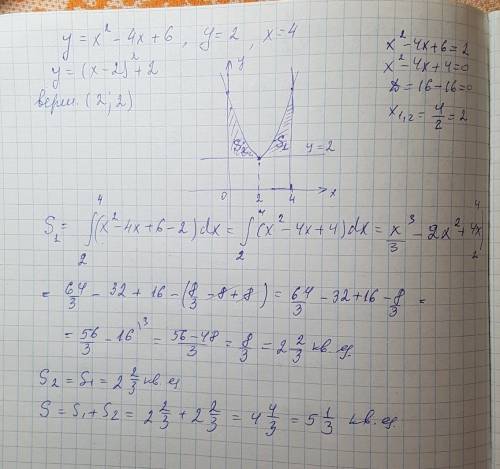 y = x² - 4x + 6 , y = 2 , x = 4
y = (x-2)² + 2
верш. (2; 2)
x² - 4x + 6 = 2
x² - 4x + 4 = 0
D = 16 - 16 = 0
x₁,₂ = 4/2 = 2
y
S₂ S₁ y = 2
0 2 4 x
S₁ = ∫₂⁴ (x² - 4x + 6 - 2) dx = ∫₂⁴ (x² - 4x + 4) dx = x³/3 - 2x² + 4x |₂⁴
= 64/3 - 32 + 16 - (8/3 - 8 + 8) = 64/3 - 32 + 16 - 8/3 =
= 56/3 - 16^{\3} = (56 - 48)/3 = 8/3 = 2 2/3 кв. ед.
S₂ = S₁ = 2 2/3 кв. ед
S = S₁ + S₂ = 2 2/3 + 2 2/3 = 4 4/3 = 5 1/3 кв. ед.